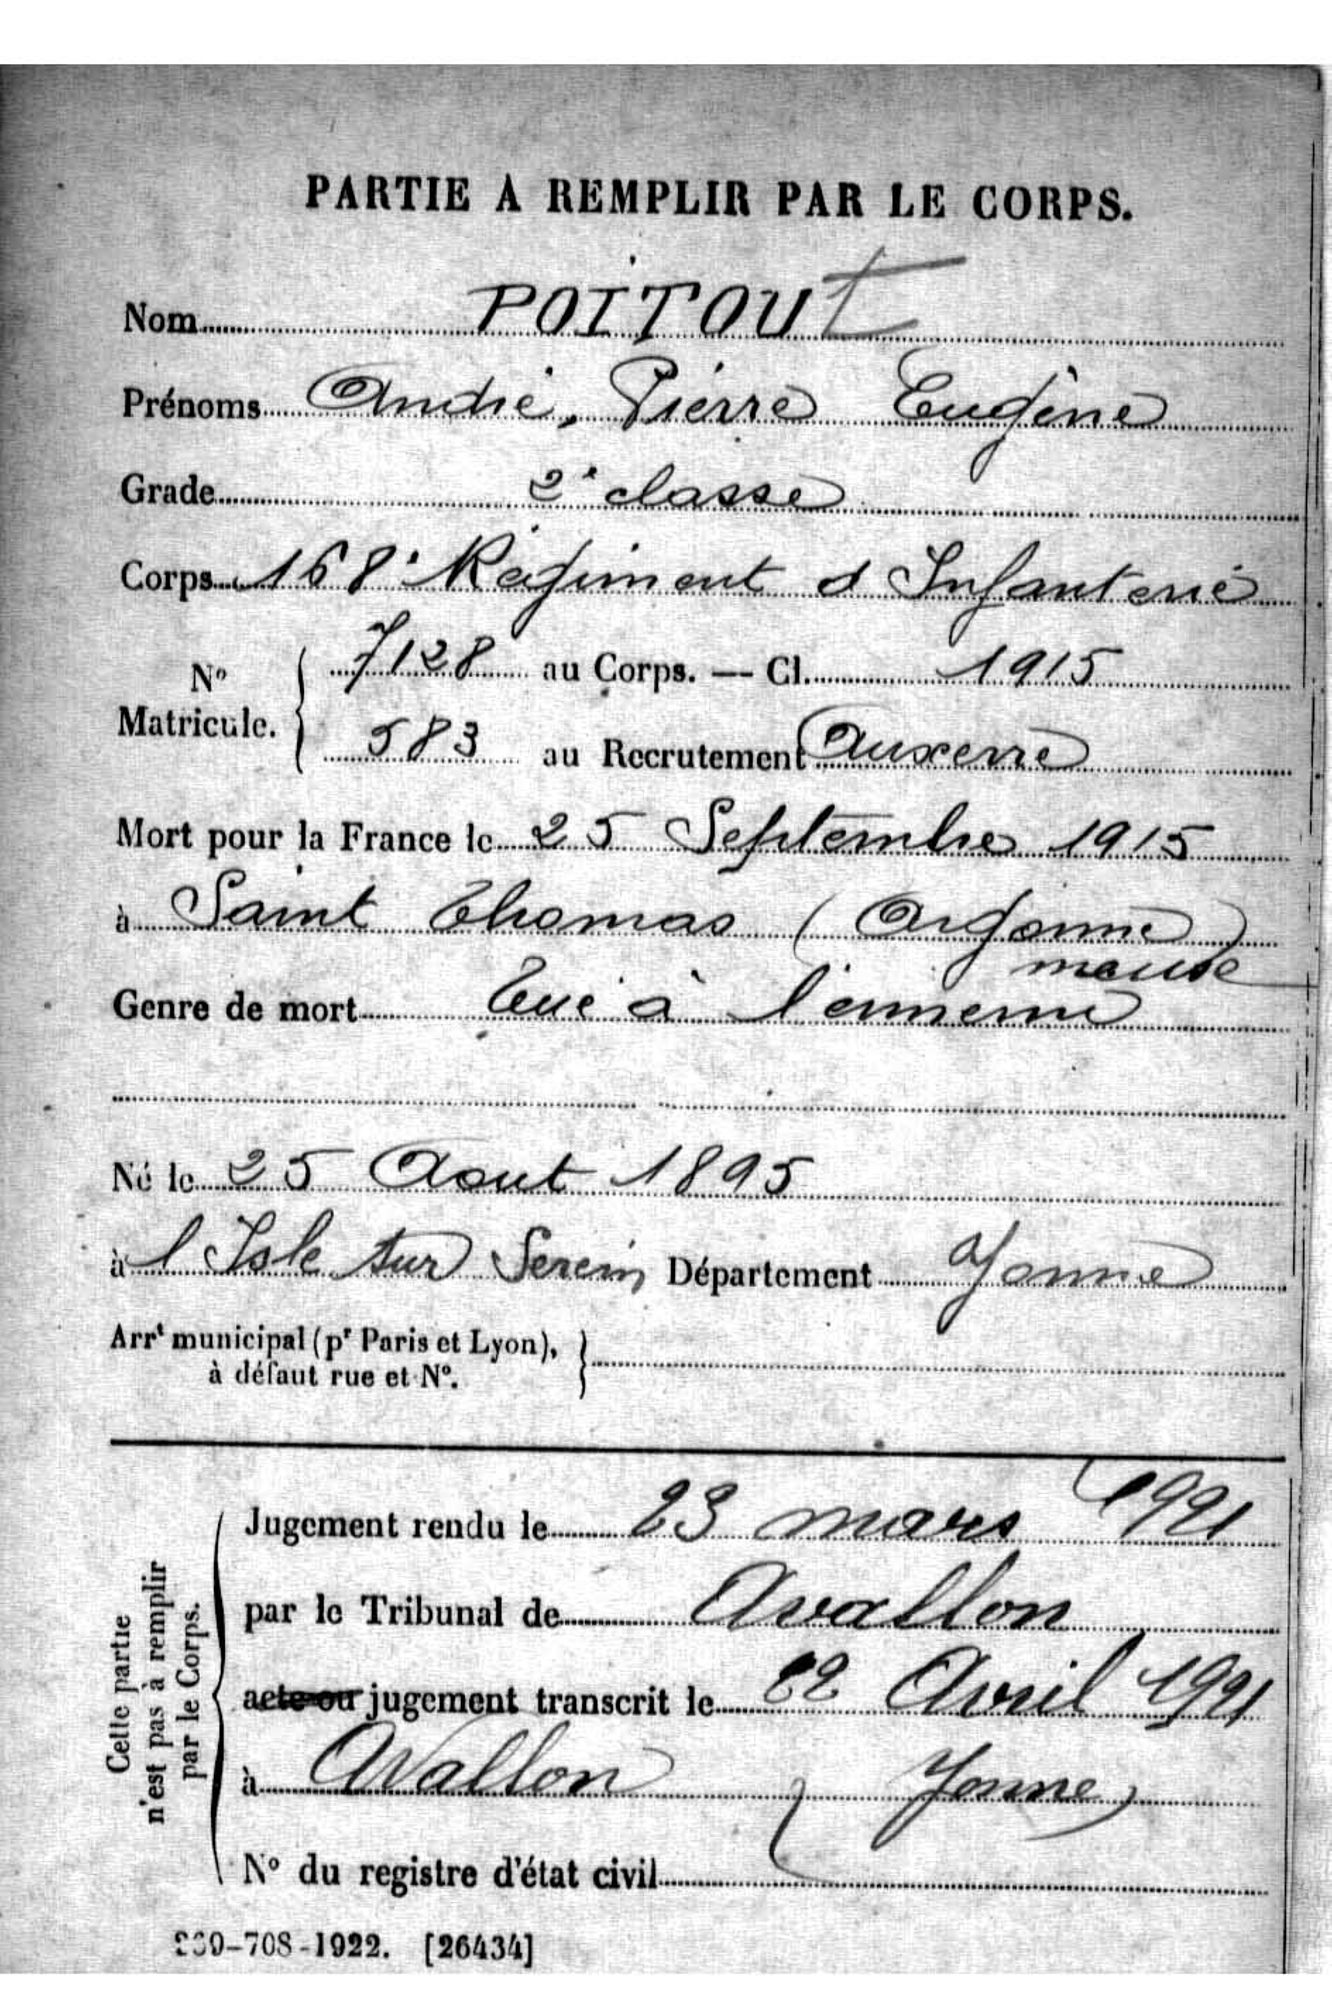 PARTIE A REMPLIR PAR LE CORPS.
Nom POITOUt
Prénoms André, Pierre Eugène
Grade 2e classe
Corps 168e Régiment d Infanterie
No Matricule. { 7128 au Corps. — Cl. 1915
583 au Recrutement Auxerre
Mort pour la France le 25 Septembre 1915
à Saint Thomas (Argonne)
meuse
Genre de mort Tué à l'ennemi
Né le 25 Aout 1895
à l Isle sur Serein Département Yonne
Arrt municipal (pr Paris et Lyon),
à défaut rue et No.
Cette partie
n'est pas à remplir
par le Corps.
Jugement rendu le 23 mars 1921
par le Tribunal de Avallon
acte ou jugement transcrit le 22 Avril 1921
à Avallon (Yonne)
No du registre d'état civil
-708-1922. [26434]